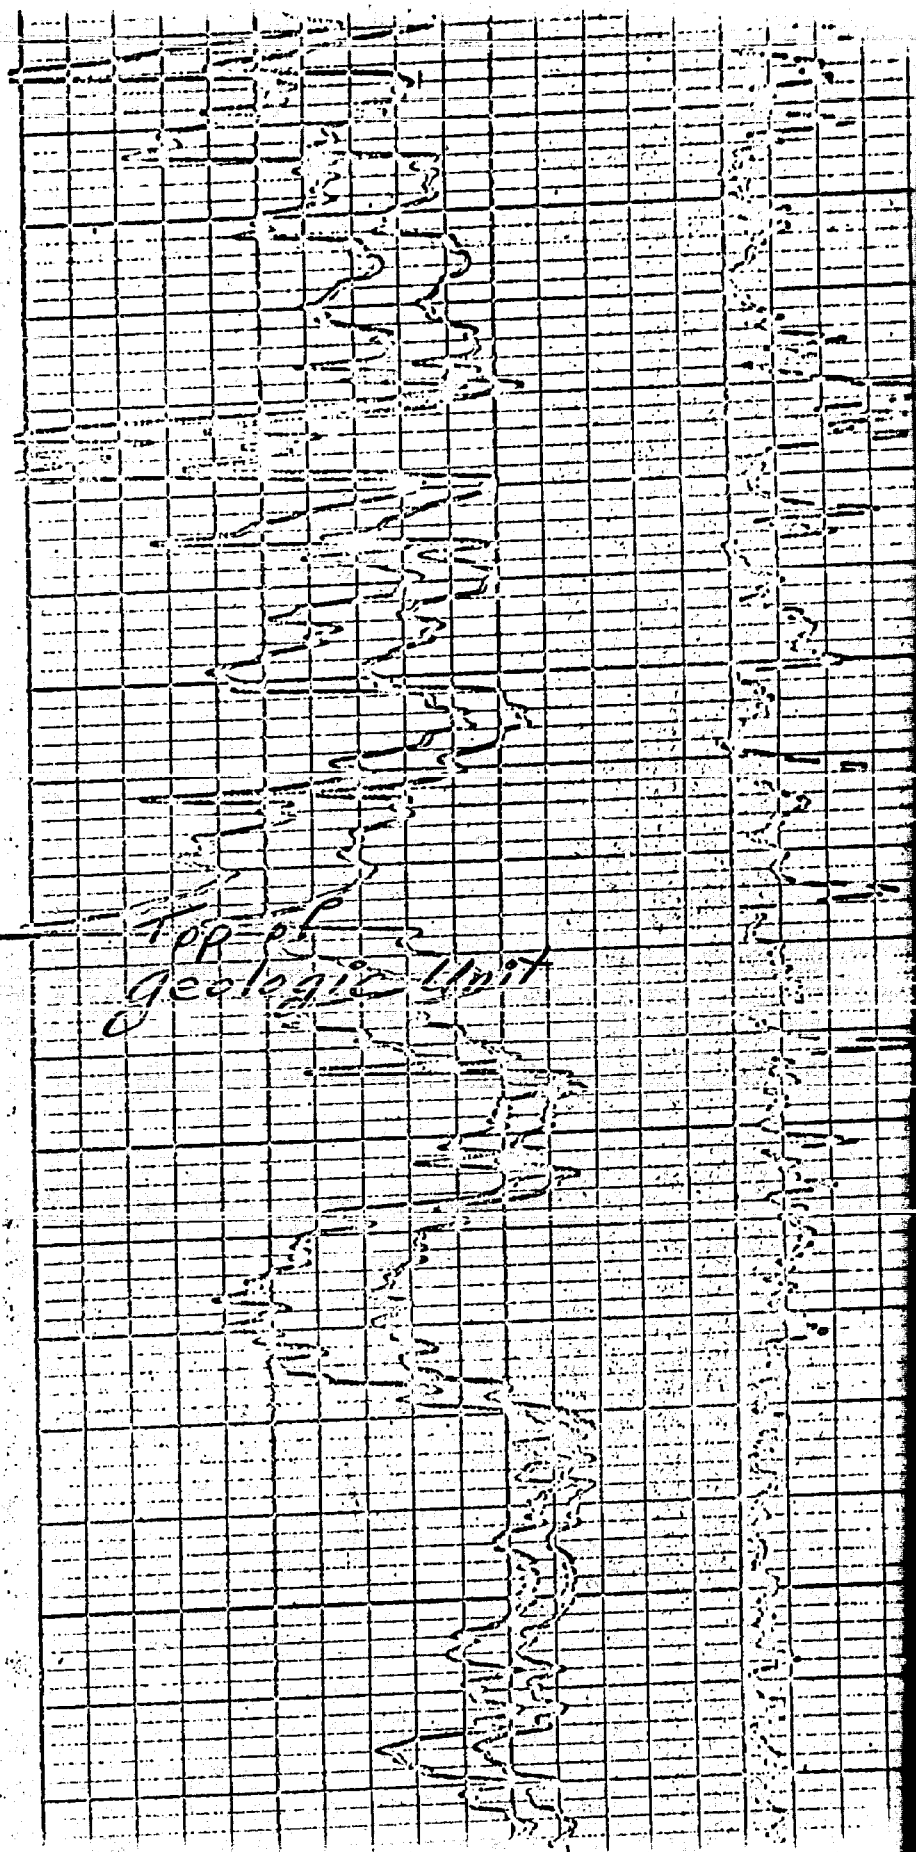 Top of
geologic Unit